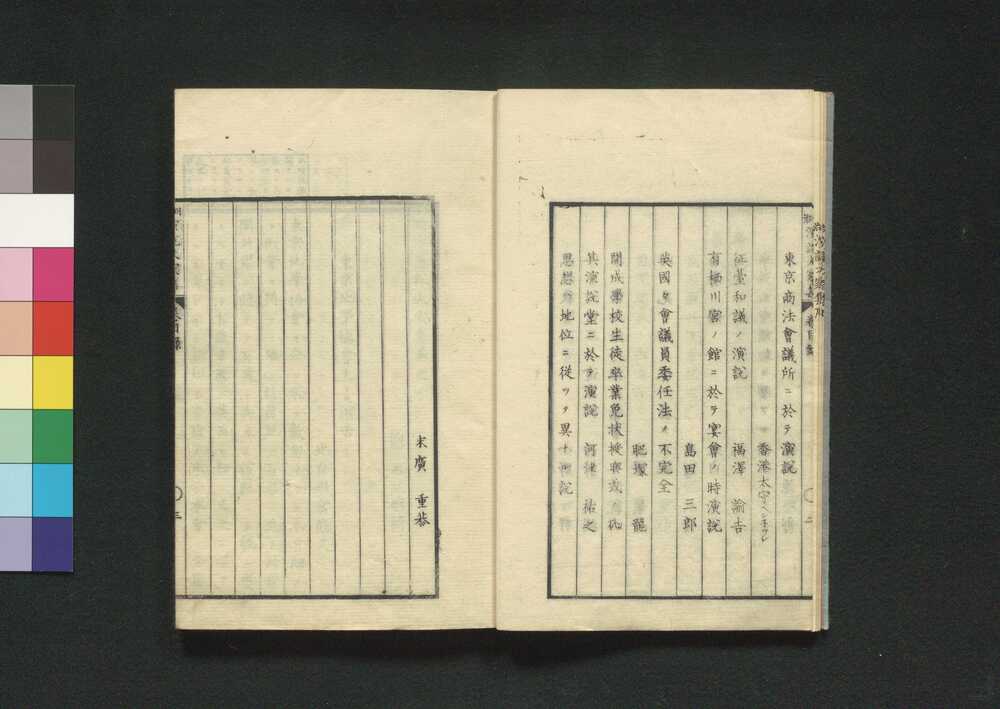 東京商法會議所ニ於テ演説
香港太守ヘンネツシ
征臺和議ノ演説　福澤　諭吉
有栖川宮ノ館ニ於テ宴會ノ時演説
島田　三郎
英國々會議員委任法ノ不完全
肥塚　龍
開成學校生徒卒業免状授與式
其演説堂ニ於テ演説　河津　祐之
思想ハ地位ニ従ツテ異ナル説
末廣　重恭